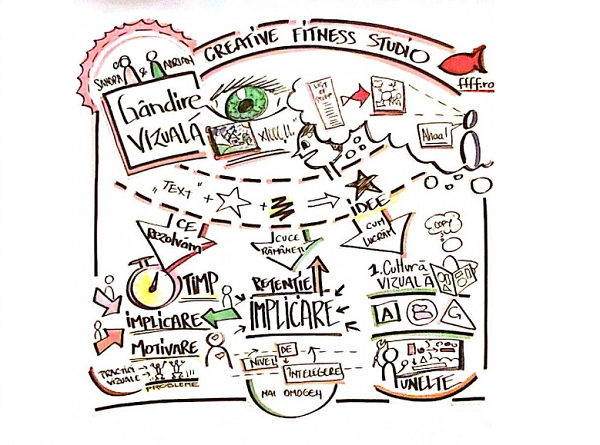 CREATIVE FITNESS STUDIO
ffff.ro
SANDRA & ADRIAN
Gândire
VIZUALĂ
LIST
OF
Ahaa!
"TEXT" + + ⇒ IDEE
CE
Rezolvăm
CU CE
RĂMÂNEȚI
CUM
LUCRĂM
COPY
TIMP
IMPLICARE
MOTIVARE
TRACTICI
VIZUALE
PROBLEME
RETENȚIE
IMPLICARE
NIVEL
DE
INTELEGERE
MAI OMOGEN
1. Cultură
VIZUALĂ
A B G
UNELTE